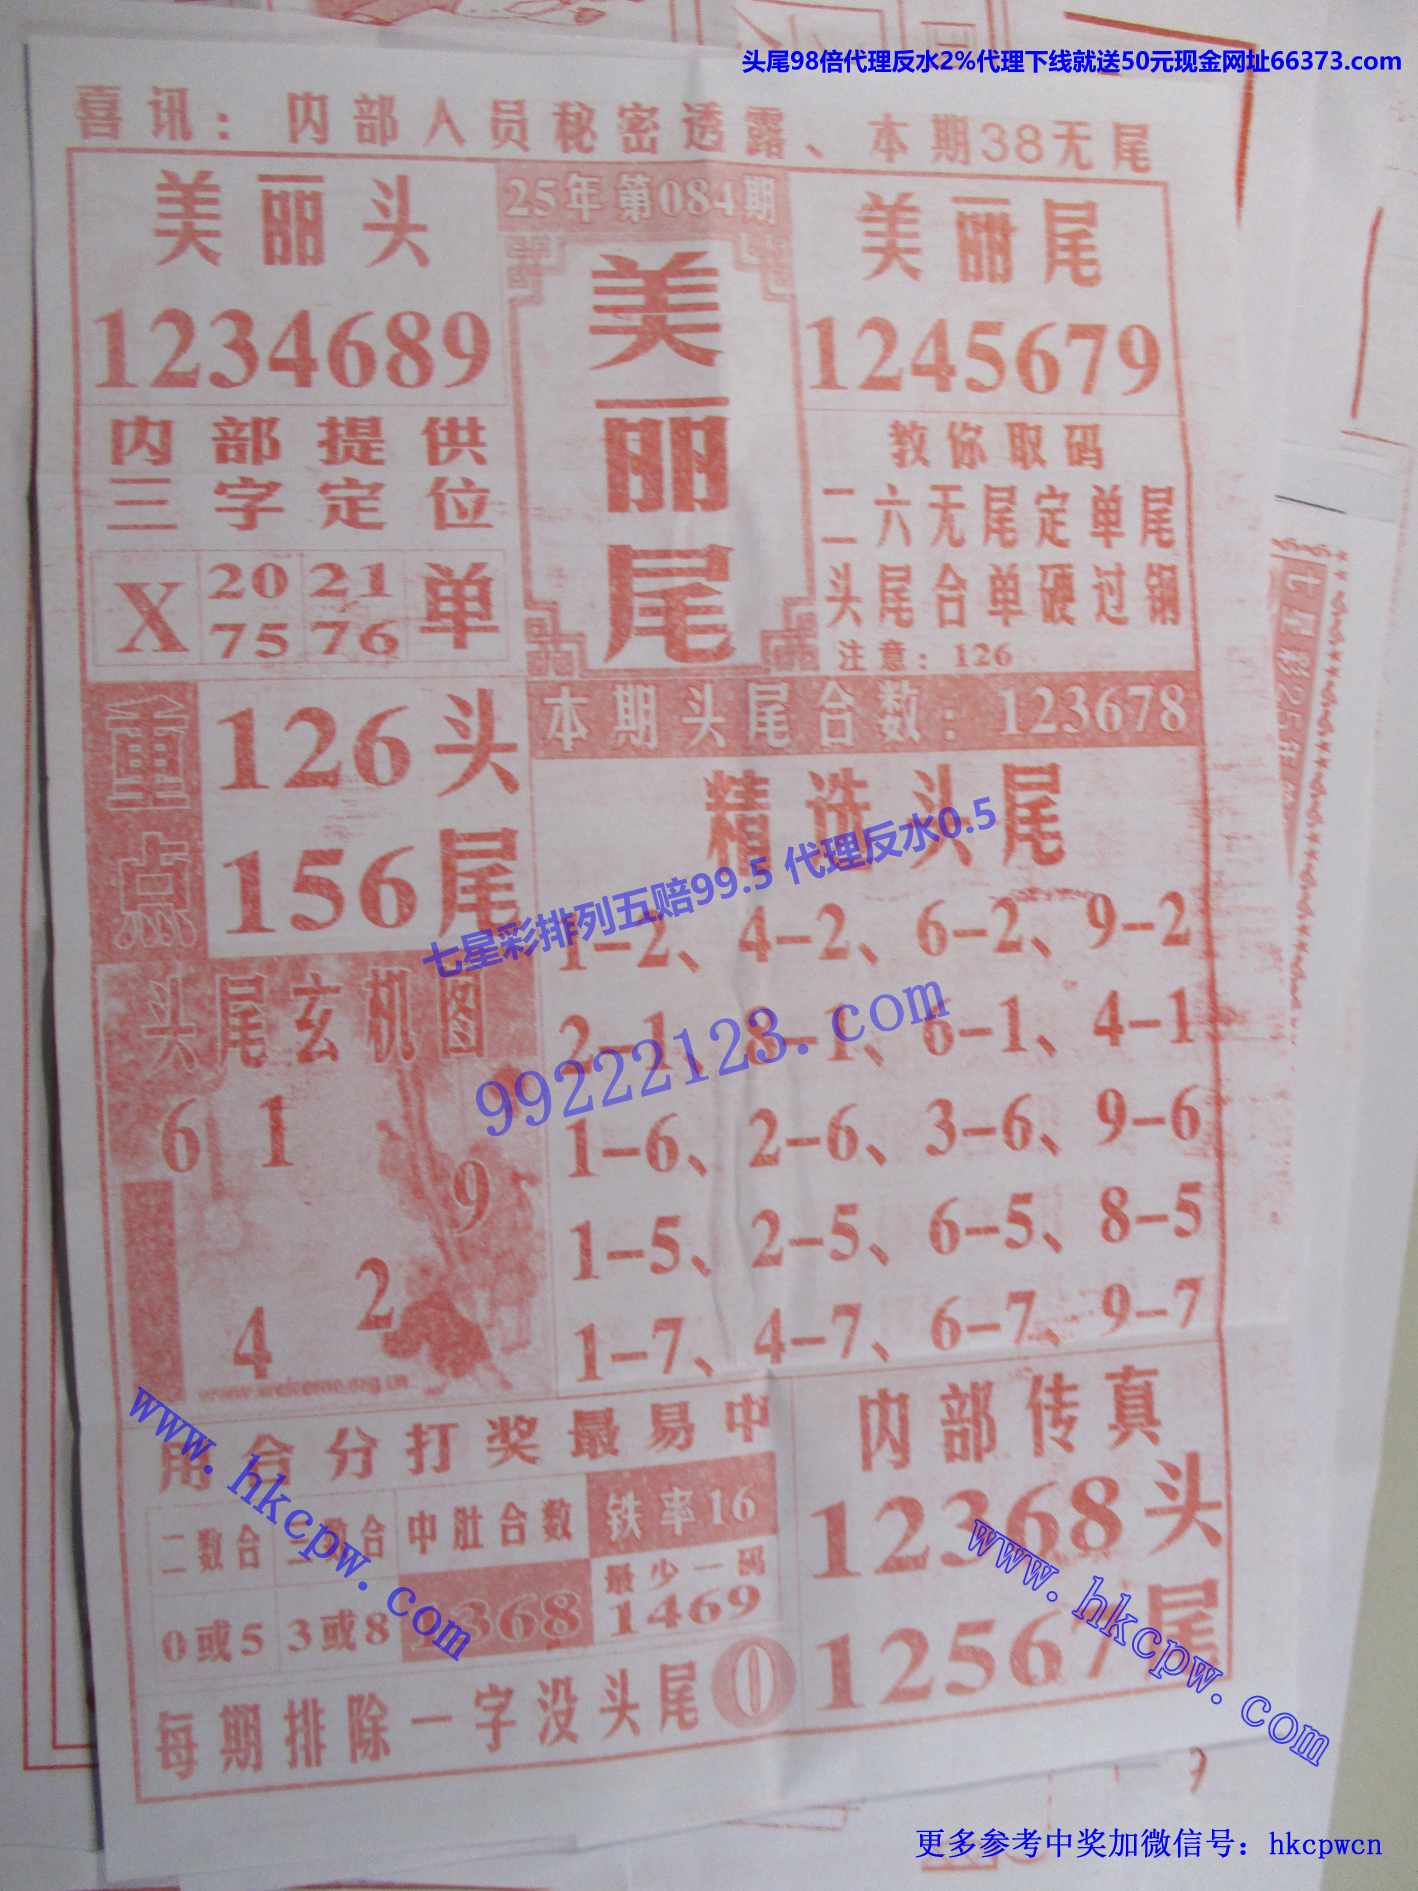 头尾98倍代理反水2%代理下线就送50元现金网址66373.com
喜讯：内部人员秘密透露、本期38无尾
美丽头
1234689
25年第084期
美丽尾
美丽尾
1245679
内部提供
三字定位
X 20 21 单
75 76
教你取码
二六无尾定单尾
头尾合单硬过钢
注意：126
重点
126头
156尾
本期头尾合数：123678
精选头尾
七星彩排列五赔99.5 代理反水0.5
1-2、4-2、6-2、9-2
2-1、8-1、6-1、4-1
99222123.com
1-6、2-6、3-6、9-6
1-5、2-5、6-5、8-5
1-7、4-7、6-7、9-7
头尾玄机图
6 1
9
2
4
www.welcome.org.cn
www.hkcpw.com
用合分打奖最易中
二数合 合 中肚合数 铁率16
0或5 3或8 368 最少一码
1469
每期排除一字没头尾 0
内部传真
12368头
12567尾
www.hkcpw.com
七星彩25年
更多参考中奖加微信号：hkcpwcn